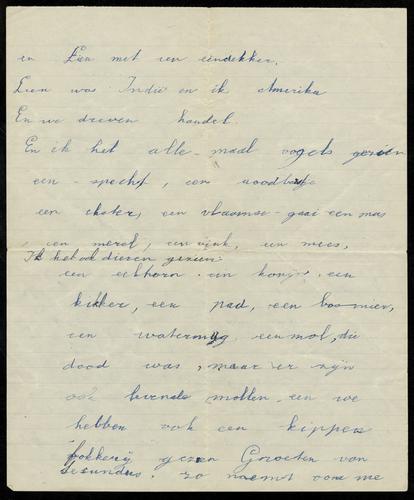 en Een met een eindekker.
Een was Indië en ik Amerika
En we dreven handel.
En ik het alle-maal vogels gezien
een-specht, een roodborstje
een ekster, een vlaamse-gaai een mus
, een merel, een vink, een mees,
Ik het ook dieren gezien:
een eekhorn een konijn een
kikker, een pad, een bosmier,
een watermug, een mol, die
dood was, maar er zijn
ook levende mollen, en we
hebben ook een kippen
fokkerij gezen Groeten van
Secundus. zo noemt oom me